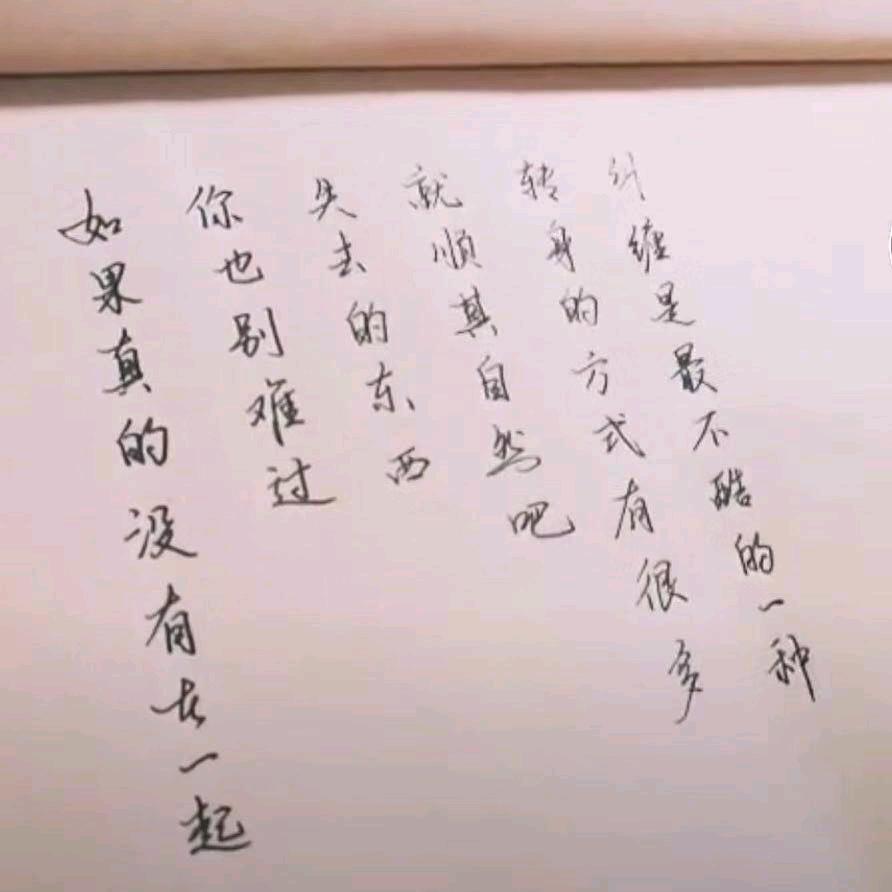 如果真的没有在一起
你也别难过
失去的东西
就顺其自然吧
转身的方式有很多
纠缠是最不酷的一种